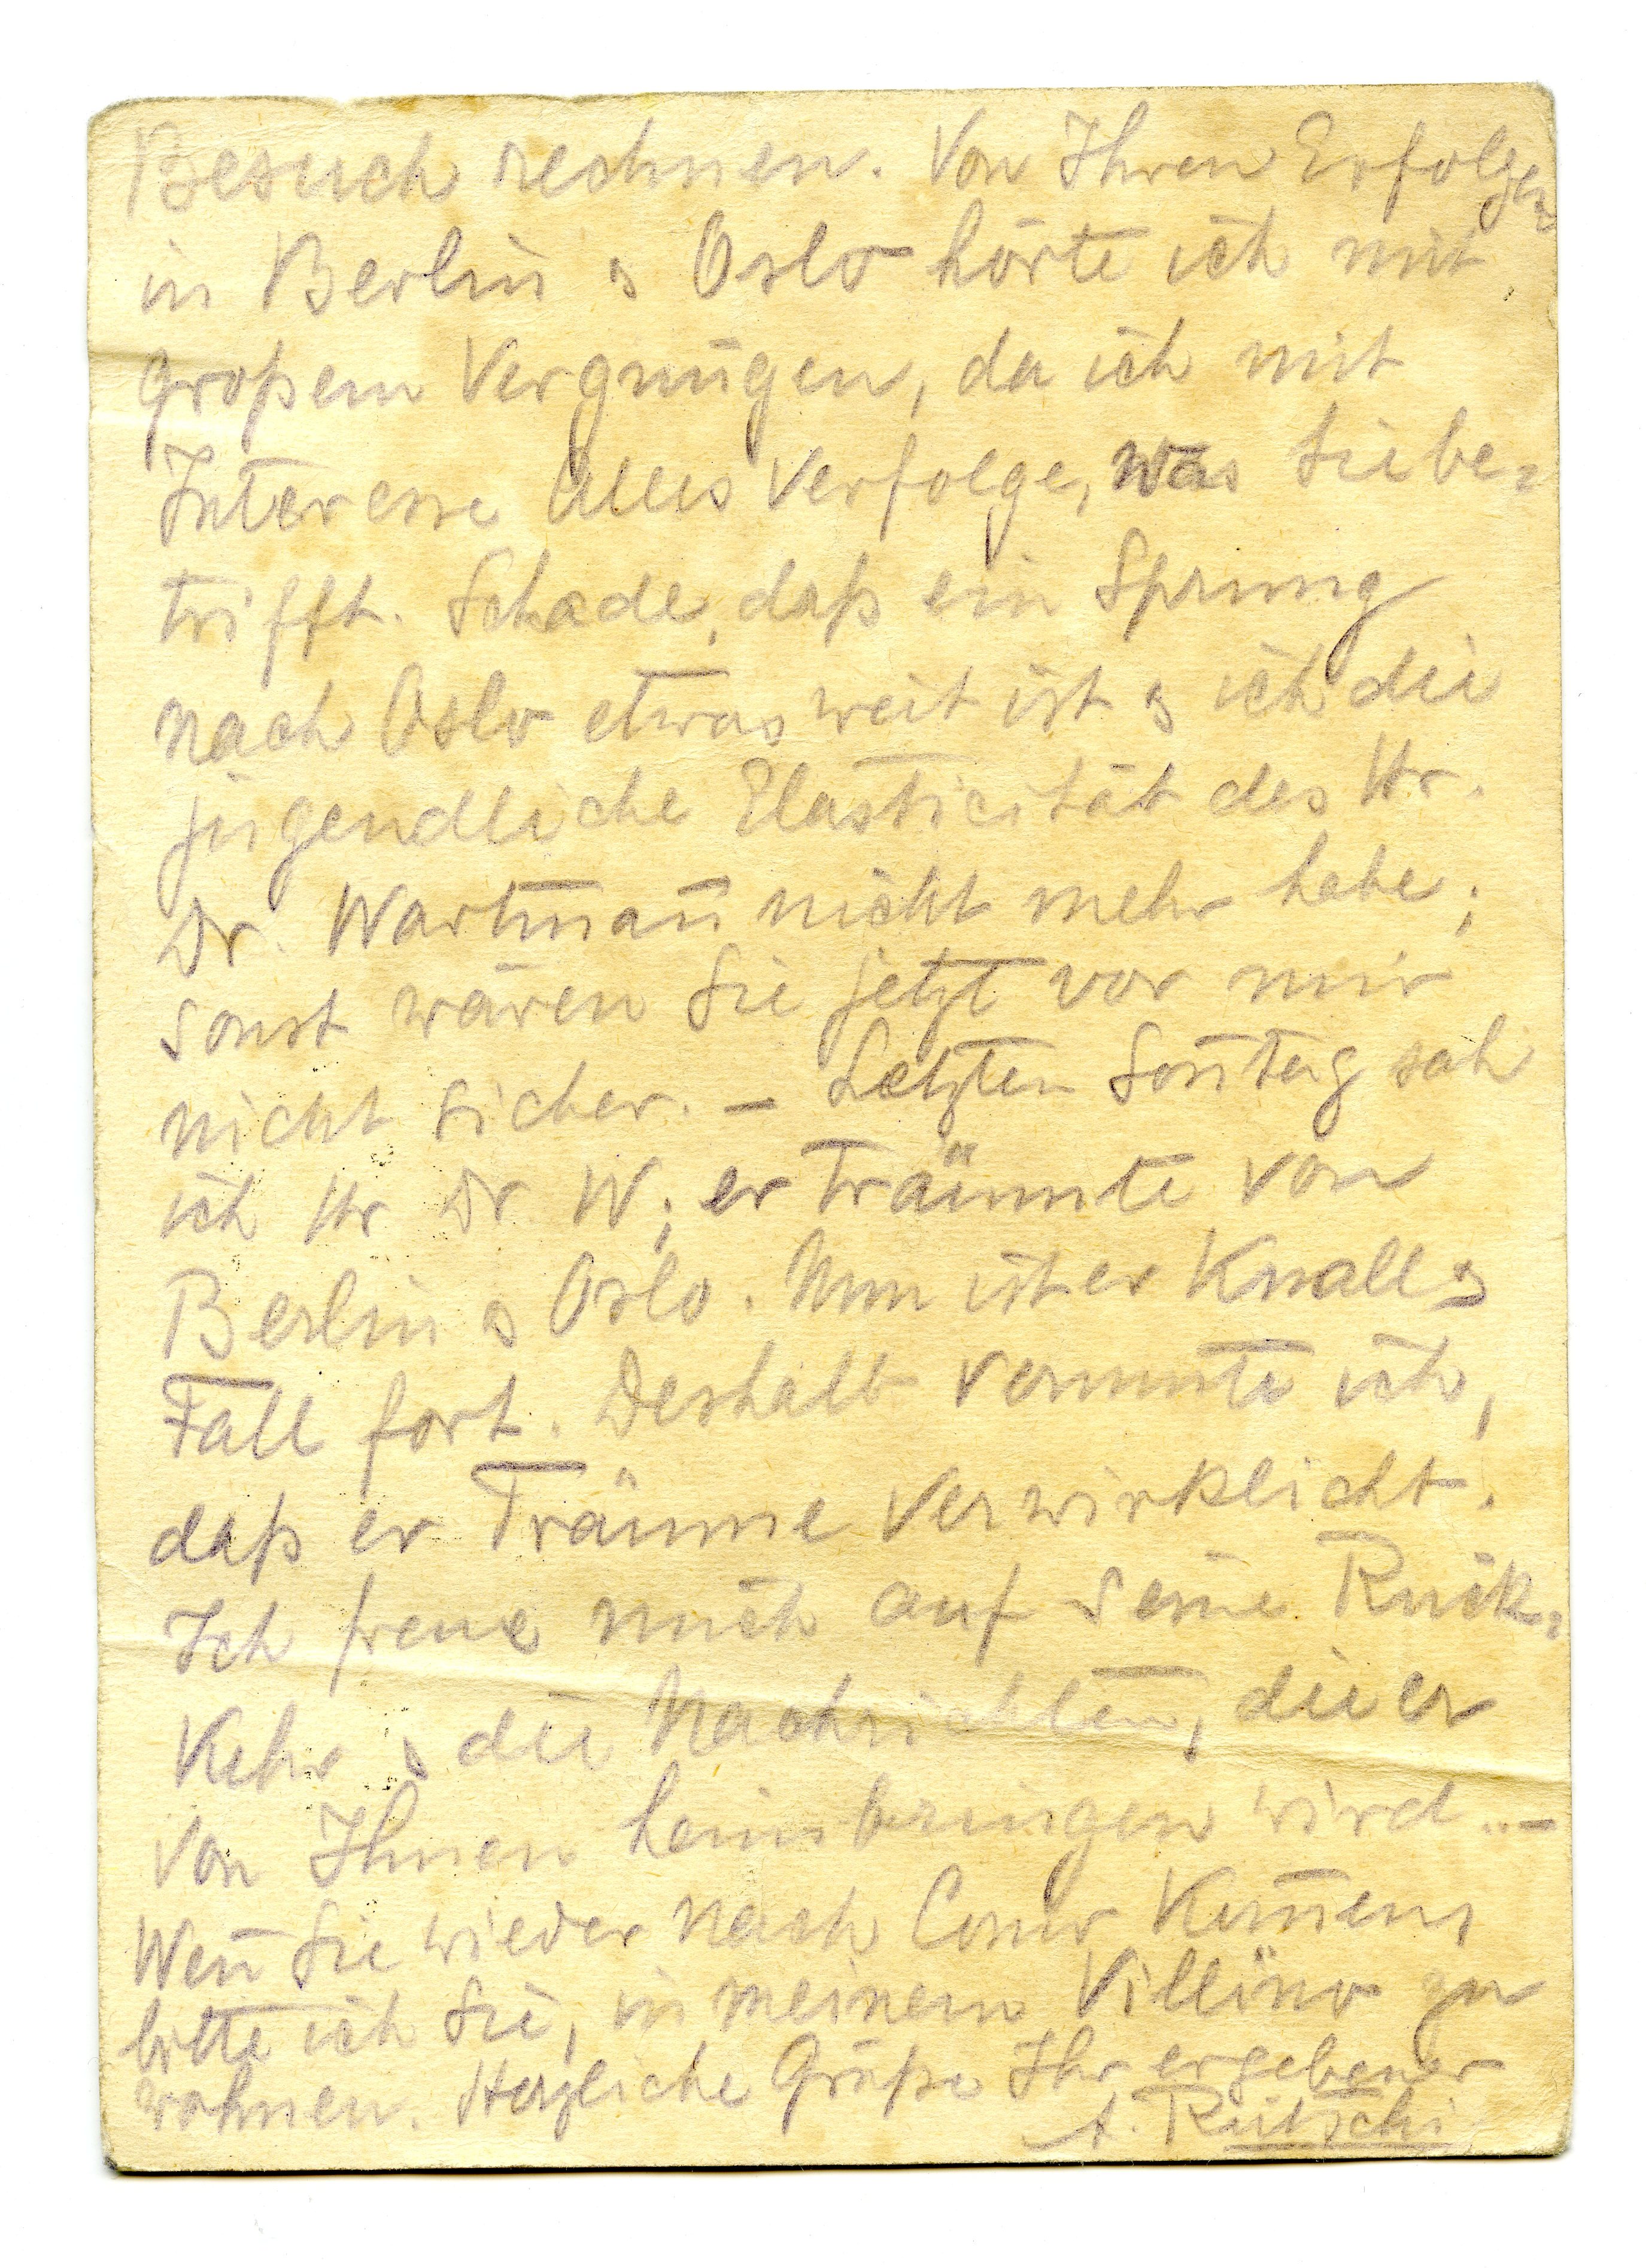 Besuch rechnen. Von Ihren Erfolgen
in Berlin & Oslo hörte ich mit
großem Vergnügen, da ich mit
Interesse alles verfolge, was Sie be-
trifft. Schade, daß ein Sprung
nach Oslo etwas weit ist & ich die
jugendliche Elasticität des Hr.
Dr. Wartman̄ nicht mehr habe;
sonst wären Sie jetzt vor mir
nicht sicher. – Letzten Son̄tag sah
ich Hr Dr W; er träumte von
Berlin & Oslo. Nun ist er Knall &
Fall fort. Deshalb vermute ich,
daß er Träume verwirklicht.
Ich freue mich auf seine Rück-
kehr & die Nachrichten, die er
von Ihnen heimbringen wird. –
Wen̄ Sie wieder nach Como kom̄en,
bitte ich Sie, in meinem Villino zu
wohnen. Herzliche Grüße Ihr ergebener
A. Rütschi